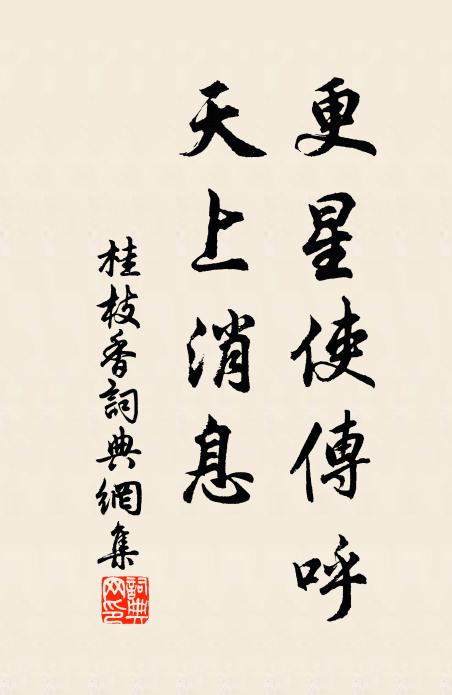 更星使傳呼
天上消息
桂枝香詞典網集
詞典網印